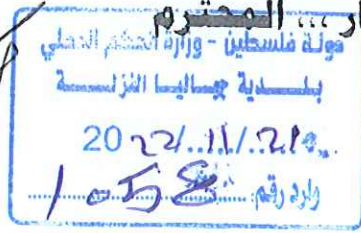 المحترم ...
دولة فلسطين - وزارة الحكم المحلي
بلدية جباليا النزلة
2022/11/21
وارد رقم: 1058